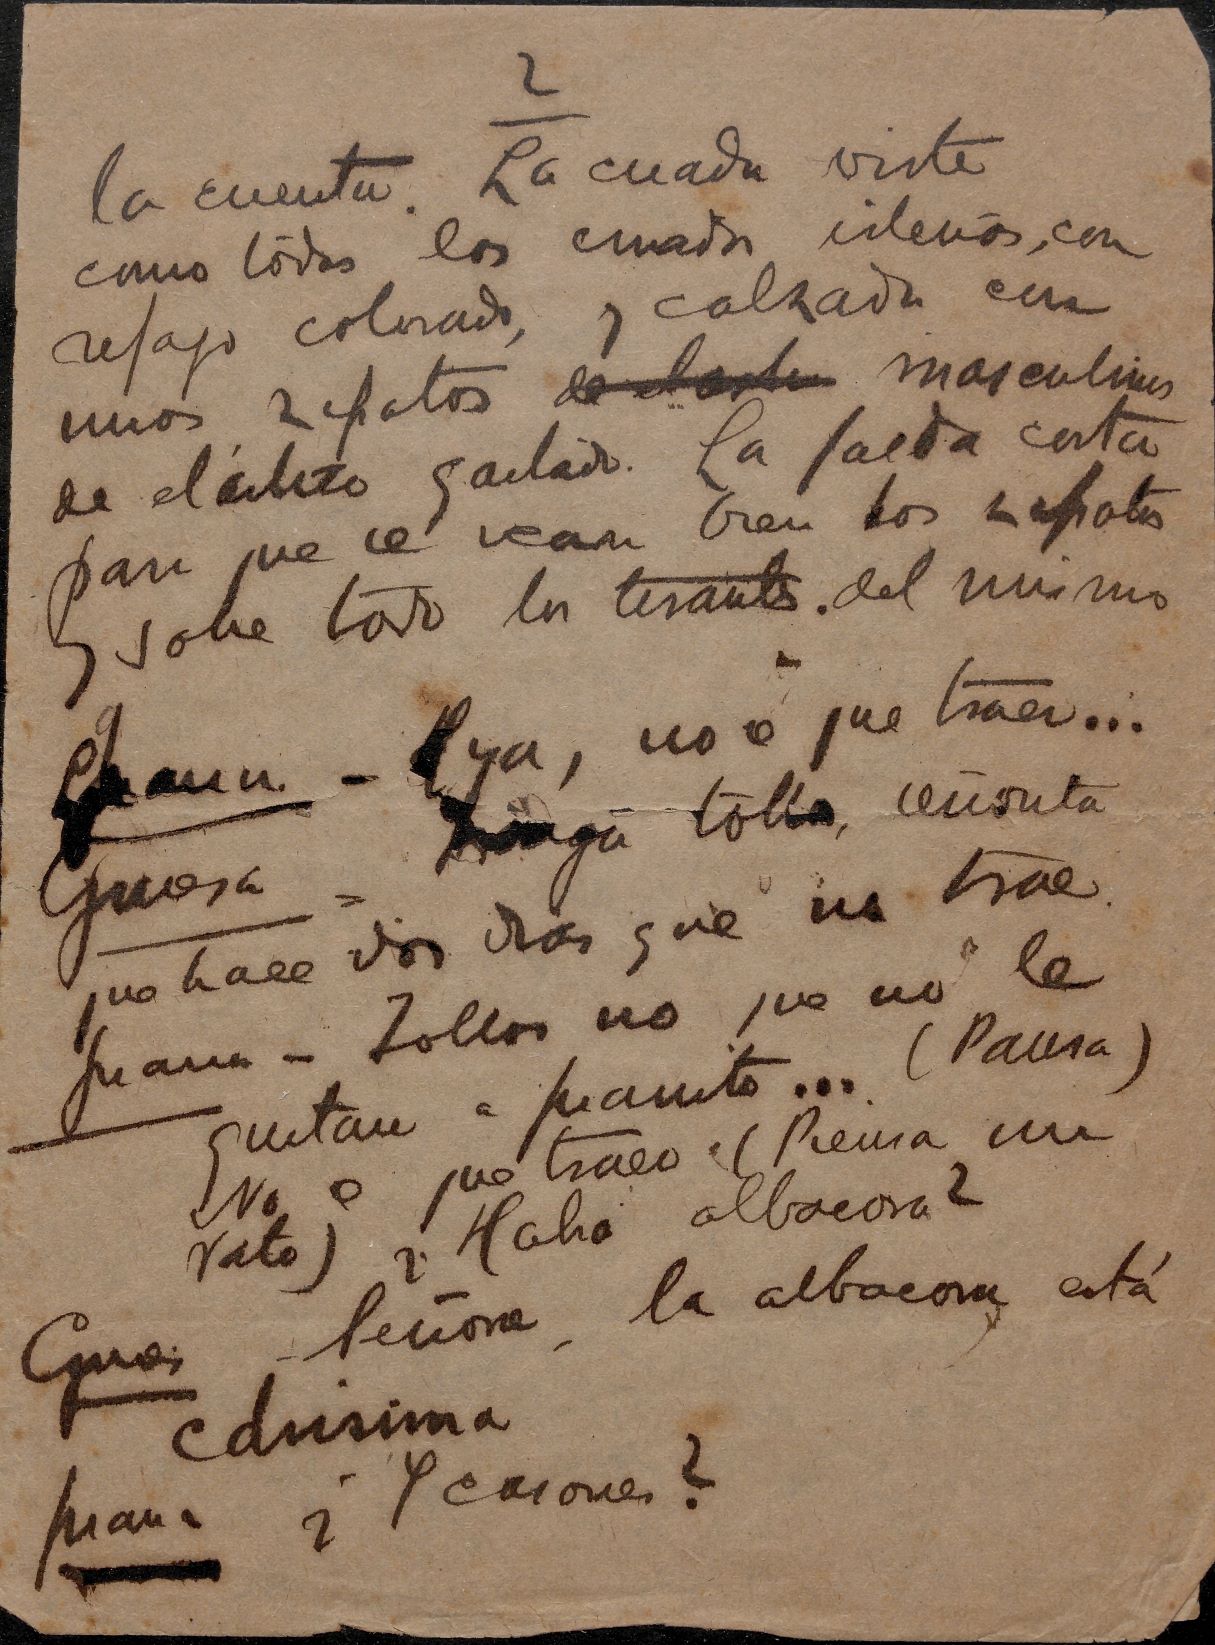 2
la cuenta. La criada viste
como todas las criadas isleñas, con
refajo colorado, y calzada con
unos zapatos masculinos
de elástico gastado. La falda corta
para que se vean bien los zapatos
y sobre todo los tirantes del mismo
Juana - Pya, no sé que traer...
- Tenga tollo, señorita
que hace dos días que no trae.
Juana - Tollos no que no le
gustan a Juanito... (Pausa)
No sé que traer (Piensa un
rato) ¿Habrá albacora?
- Señora, la albacora está
carísima
Juana ¿Y casones?